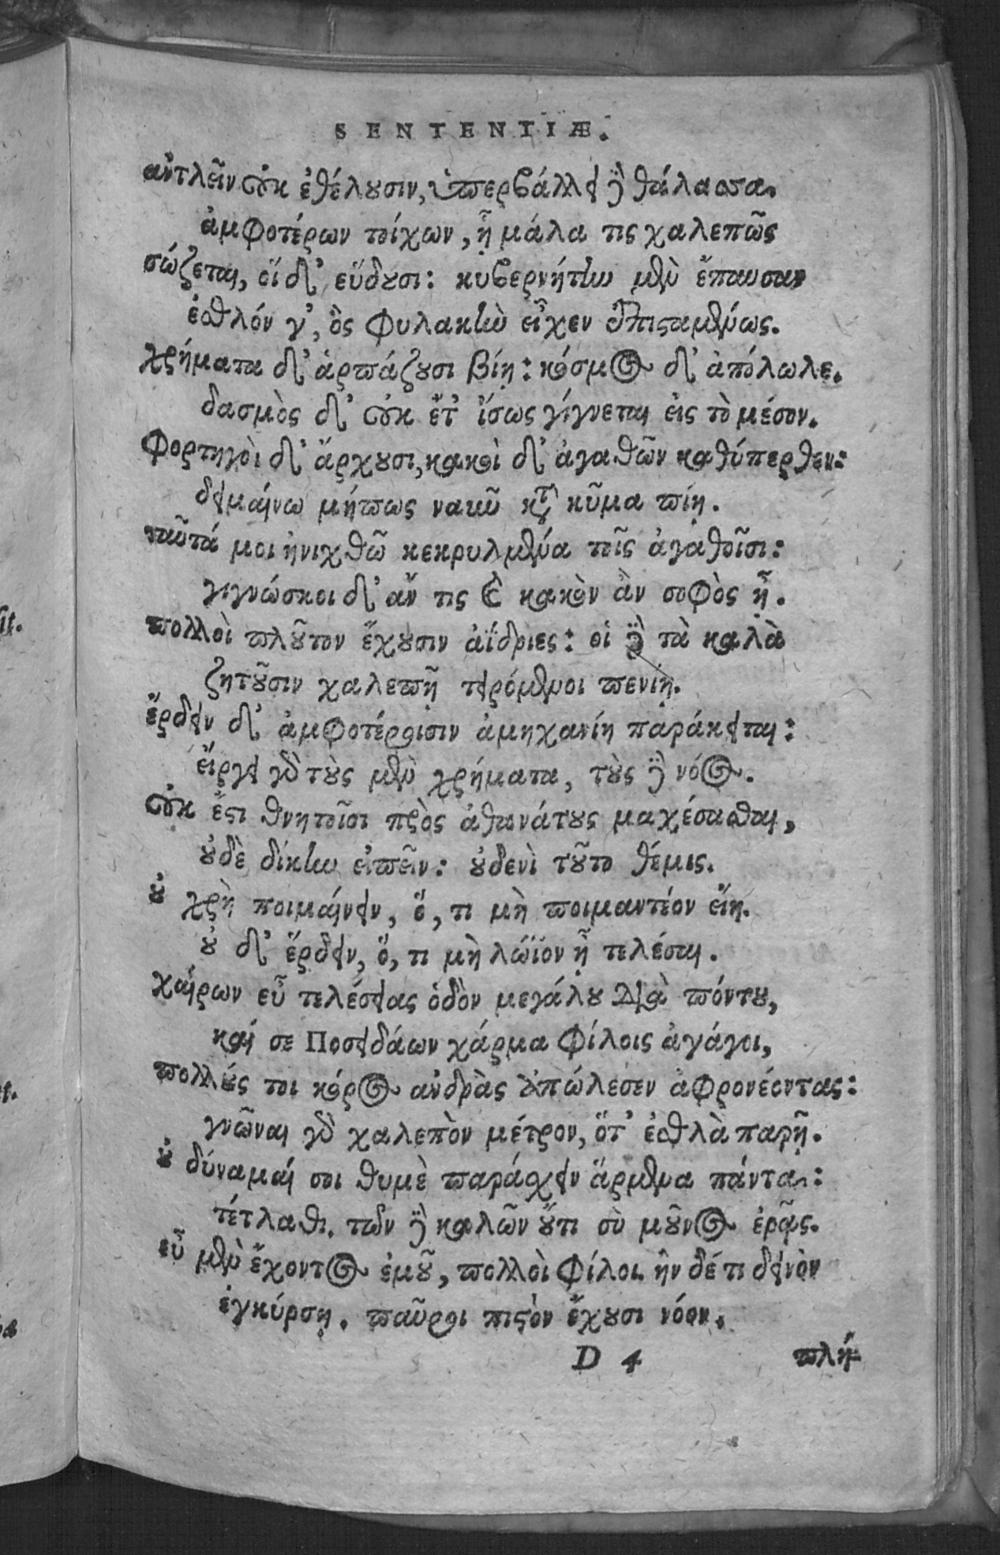 SENTENTIÆ.
ἀντλεῖν οὐκ ἐθέλουσιν, ὑπερβάλλει δὲ θάλασσα
ἀμφοτέρων τοίχων, ἦ μάλα τις χαλεπῶς
σώζεται, οἵ δ' εὕδουσι: κυβερνήτην μὲν ἔπαυσαν
ἐσθλόν γ', ὃς φυλακὴν εἶχεν ἐπισταμένως.
χρήματα δ' ἁρπάζουσι βίῃ: κόσμος δ' ἀπόλωλε.
δασμὸς δ' οὐκ ἔτ' ἴσως γίγνεται εἰς τὸ μέσον.
Φορτηγοὶ δ' ἄρχουσι, κακοὶ δ' ἀγαθῶν καθύπερθεν:
δειμαίνω μήπως ναῦν κατὰ κῦμα πίῃ.
ταῦτά μοι ἠνιχθῶ κεκρυμμένα τοῖς ἀγαθοῖσι:
γιγνώσκοι δ' ἄν τις καὶ κακὸν ἂν σοφὸς ᾖ.
πολλοὶ πλοῦτον ἔχουσιν ἀΐδριες: οἱ δὲ τὰ καλὰ
ζητοῦσιν χαλεπῇ τειρόμενοι πενίῃ.
ἔρδειν δ' ἀμφοτέροισιν ἀμηχανίη παράκειται:
εἴργει γὰρ τοὺς μὲν χρήματα, τοὺς δὲ νόος.
οὐκ ἔστι θνητοῖσι πρὸς ἀθανάτους μαχέσασθαι,
οὐδὲ δίκην εἰπεῖν: οὐδενὶ τοῦτο θέμις.
οὐ χρὴ ποιμαίνειν, ὅ, τι μὴ ποιμαντέον εἴη.
οὐ δ' ἔρδειν, ὅ, τι μὴ λώϊον ᾖ τελέσαι.
χαίρων εὖ τελέσειας ὁδὸν μεγάλου διὰ πόντου,
καί σε Ποσειδάων χάρμα φίλοις ἀγάγοι,
πολλούς τοι κόρος ἄνδρας ἀπώλεσεν ἀφρονέοντας:
γνῶναι γὰρ χαλεπὸν μέτρον, ὅτ' ἐσθλὰ παρῇ.
οὐ δύναμαί σοι θυμὲ παράσχειν ἄρμενα πάντα:
τέτλαθι. τῶν δὲ καλῶν οὔτι σὺ μοῦνος ἐρᾷς.
εὖ μὲν ἔχοντος ἐμοῦ, πολλοὶ φίλοι. ἢν δέ τι δεινὸν
ἐγκύρσῃ. παῦροι πιστὸν ἔχουσι νόον.
D 4 πλή